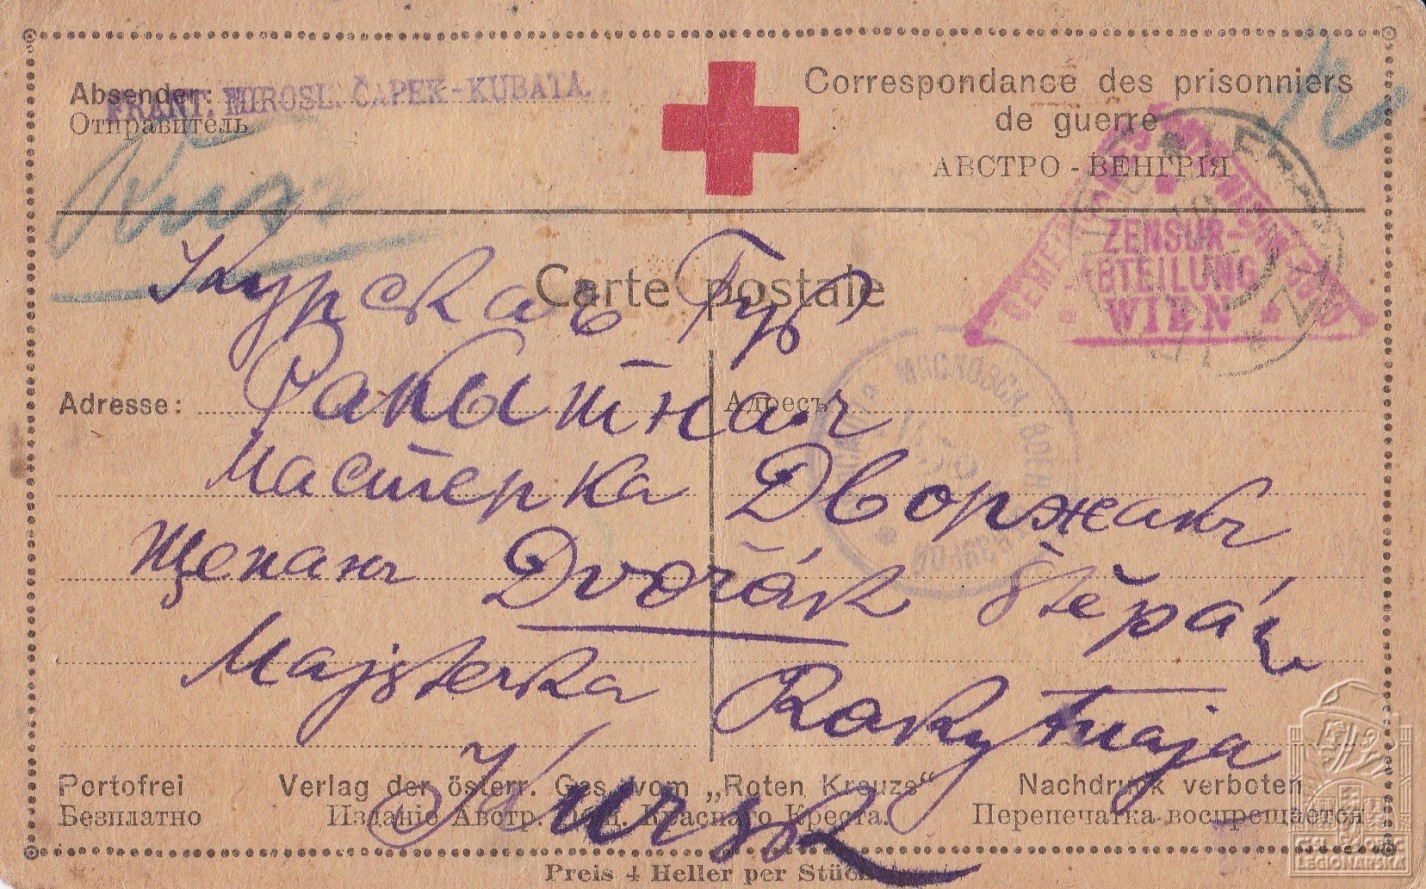 Absender:
FRANT. MIROSL. ČAPEK-KUBATA.
Отправитель
Correspondance des prisonniers
de guerre
АВСТРО - ВЕНГРІЯ
ZENSUR-
ABTEILUNG
WIEN
Carte postale
Курская Губ
Adresse:
Адресъ
Ракытная
Мастерка Дворжакъ
Щепанъ Dvořák Štěpán
Majsterka Rakytnaja
Kursk
Portofrei
Verlag der österr. Ges. vom „Roten Kreuze“
Nachdruck verboten
Безплатно
Изданіе Австр. Общ. Краснаго Креста.
Перепечатка воспрещается
Preis 4 Heller per Stück
LEGIONÁŘSKÁ